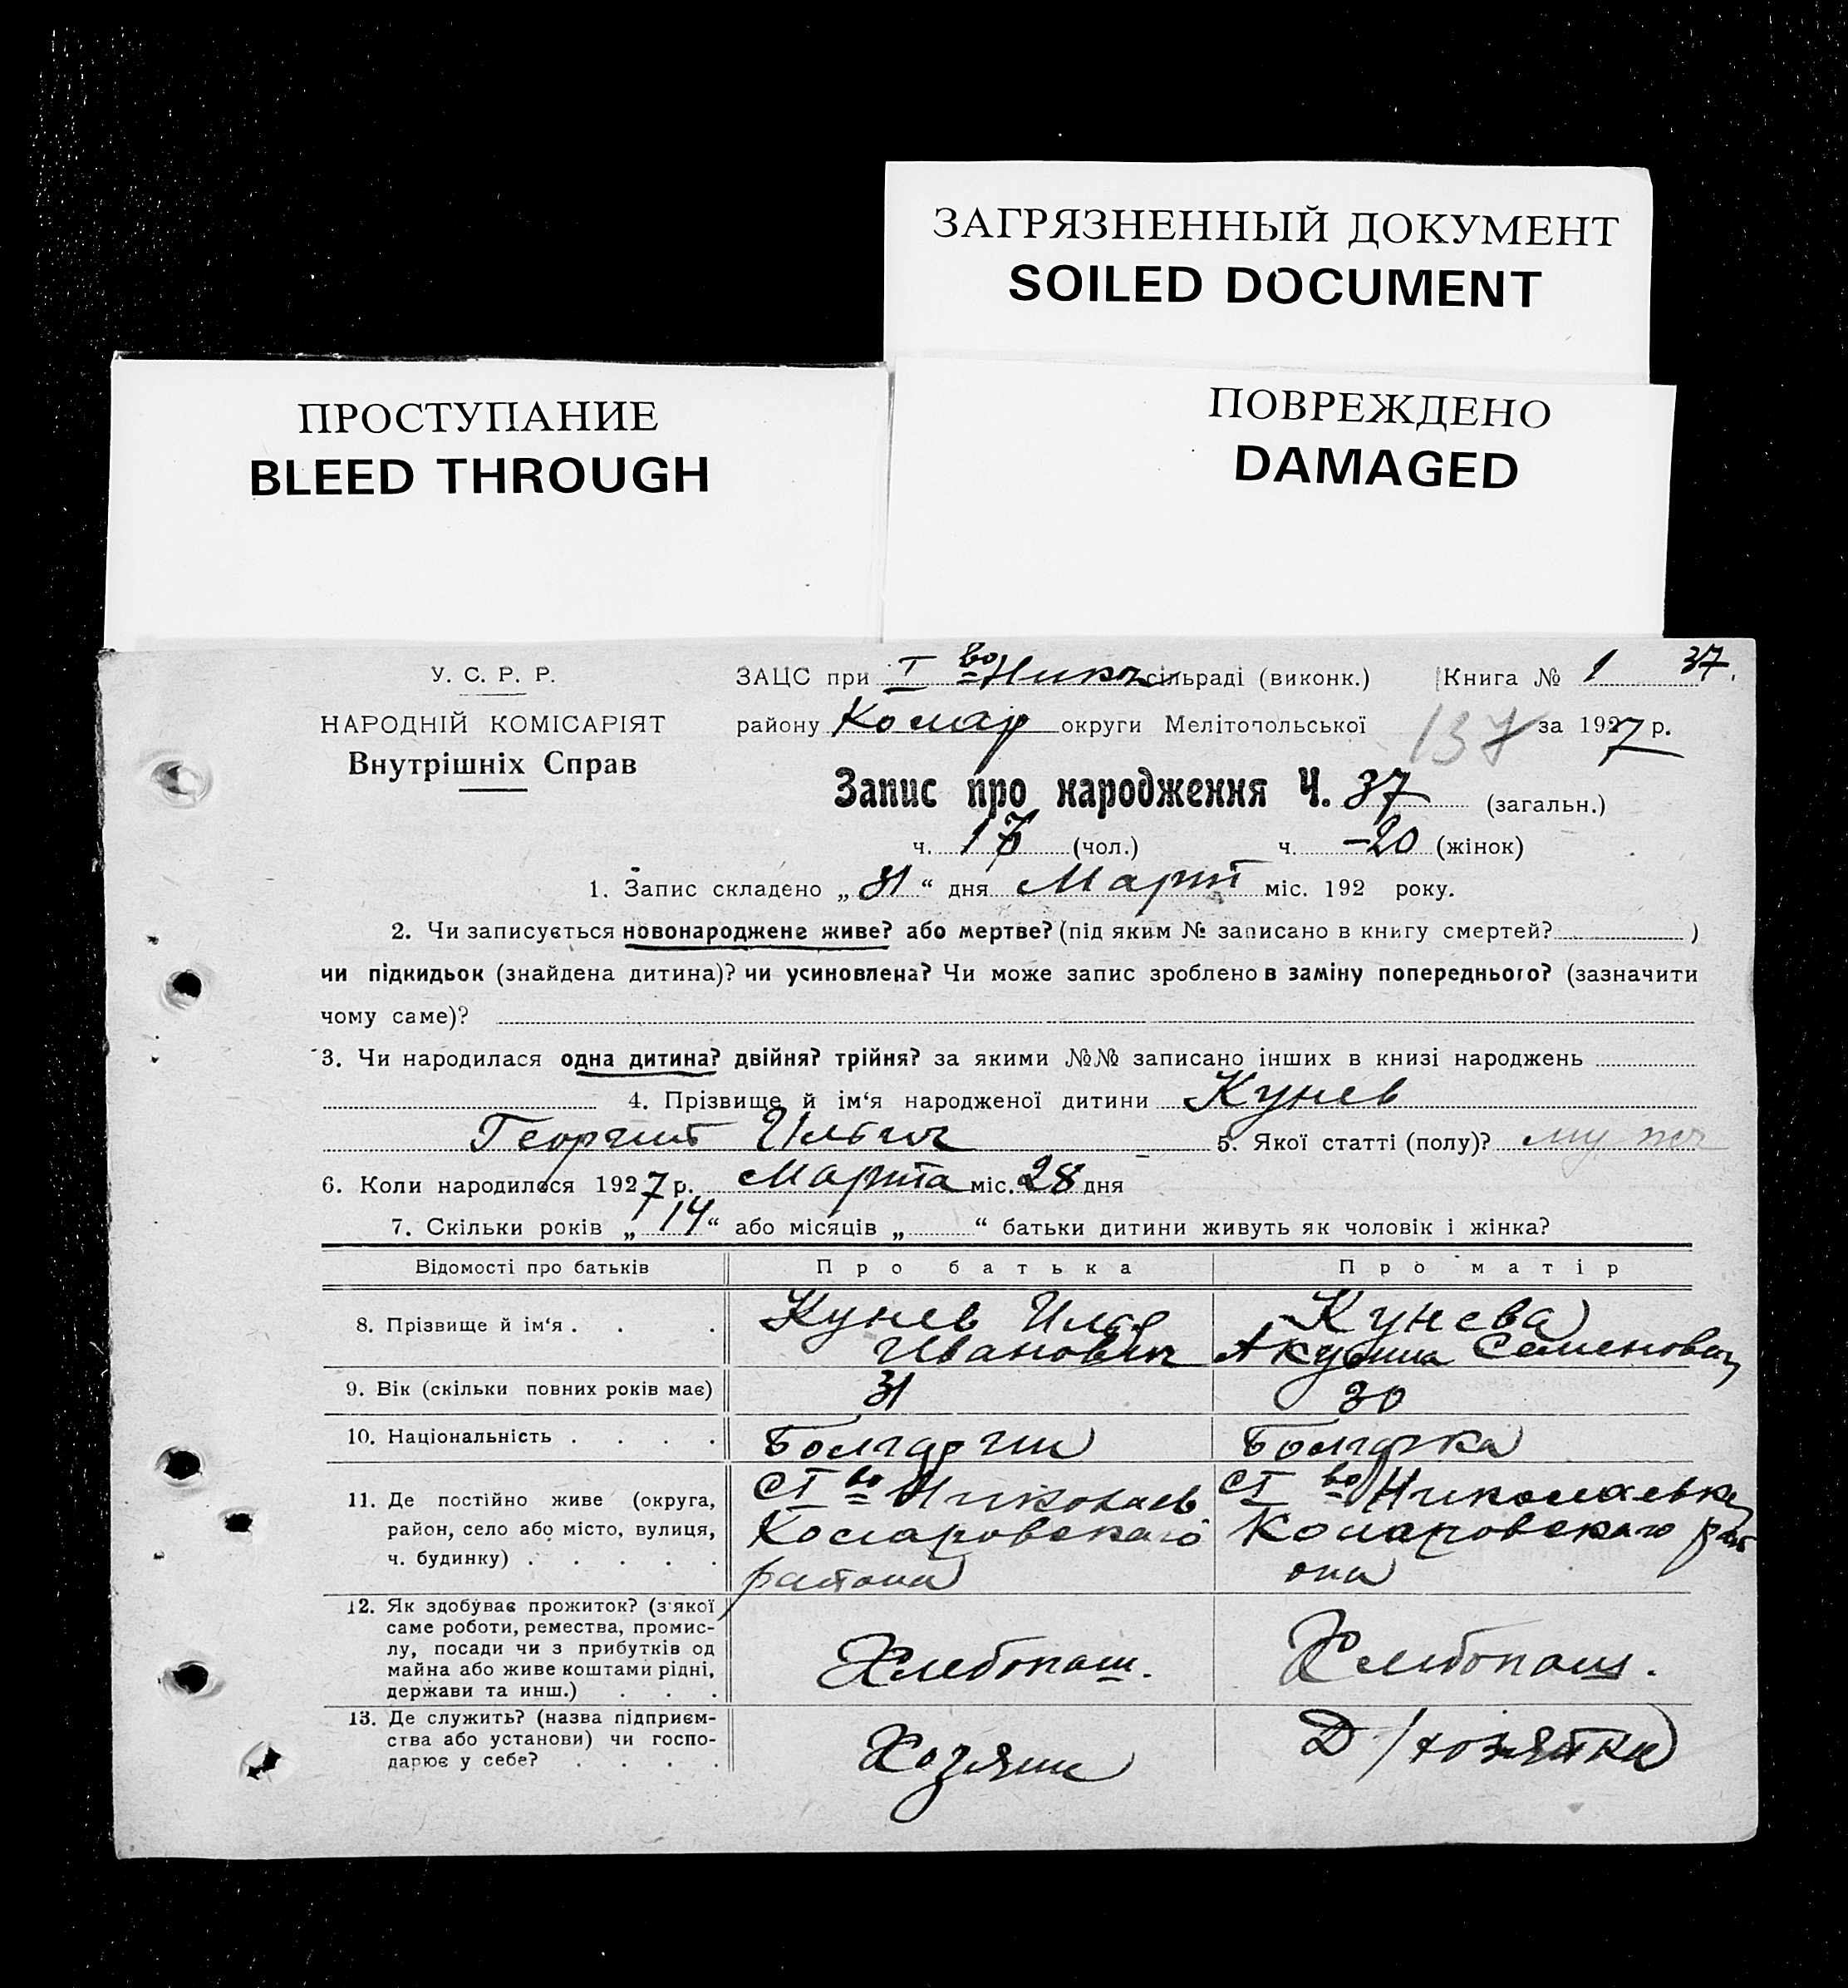 ЗАГРЯЗНЕННЫЙ ДОКУМЕНТ
SOILED DOCUMENT
ПРОСТУПАНИЕ
BLEED THROUGH
ПОВРЕЖДЕНО
DAMAGED
У. С. Р. Р.
НАРОДНІЙ КОМІСАРІЯТ
Внутрішніх Справ
ЗАЦС при І во Никол сільраді (виконк.) Книга № 1 37.
району Комар округи Мелітопольської 137 за 1927 р.
Запис про народження Ч. 37 (загальн.)
ч. 17 (чол.) ч. -20 (жінок)
1. Запис складено „31“ дня Март міс. 192 року.
2. Чи записується новонароджене живе? або мертве? (під яким № записано в книгу смертей? )
чи підкидьок (знайдена дитина)? чи усиновлена? Чи може запис зроблено в заміну попереднього? (зазначити
чому саме)?
3. Чи народилася одна дитина? двійня? трійня? за якими №№ записано інших в книзі народжень
4. Прізвище й ім‘я народженої дитини Кунев
Георгий Ильич 5. Якої статті (полу)? муж
6. Коли народилося 1927 р. Марта міс. 28 дня
7. Скільки років „14“ або місяців „ “ батьки дитини живуть як чоловік і жінка?
Відомості про батьків Про батька Про матір
8. Прізвище й ім‘я . . . Кунев Илья Иванович Кунева Акулина Семеновна
9. Вік (скільки повних років має) 31 30
10. Національність . . . . Болгарин Болгарка
11. Де постійно живе (округа, район, село або місто, вулиця, ч. будинку) . . . . . С І во Николаев Комаровского района С І во Николаевка Комаровского района
12. Як здобуває прожиток? (з якої саме роботи, ремества, промислу, посади чи з прибутків од майна або живе коштами рідні, держави та инш.) . . . Хлебопаш. Хлебопаш.
13. Де служить? (назва підприємства або установи) чи господарює у себе? . . . . Хозяин Д/хозяйка